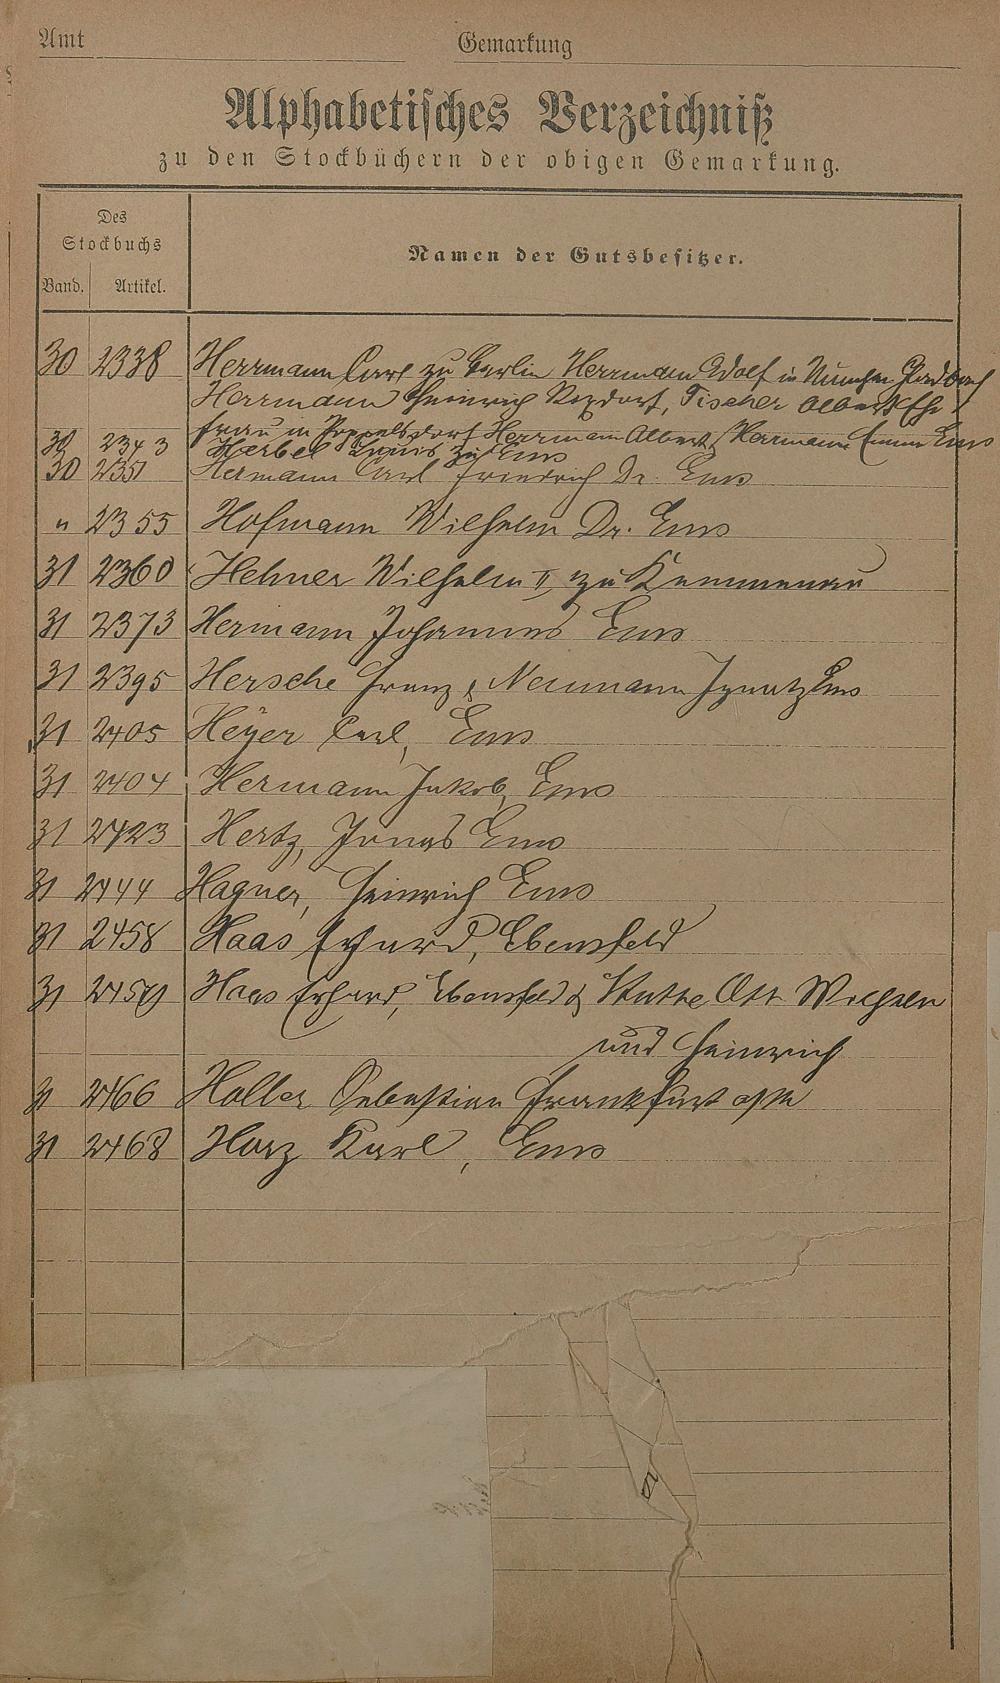 Amt
Gemarkung
Alphabetisches Verzeichniß
zu den Stockbüchern der obigen Gemarkung.
Des
Stockbuchs
Namen der Gutsbesitzer.
Band. Artikel.
30 2338 Herrmann Carl zu Berlin Herrmann Adolf in
Herrmann Heinrich Rixdorf, Fischer Albert Ehe
frau in Poppelsdorf Herrmann Albert, Herrmann Emma Ems
30 2343 Herbel Louis zu Ems
30 2351 Hermann Carl Friedrich Dr. Ems
" 2355 Hofmann Wilhelm Dr. Ems
31 2360 Hehner Wilhelm II, zu Kemmenau
31 2373 Hermann Johannes Ems
31 2395 Hersche Franz & Neumann Ignatz Ems
31 2405 Heyer Carl, Ems
31 2404 Hermann Jakob, Ems
31 2423 Hertz, Jonas Ems
31 2444 Hagner, Heinrich Ems
31 2458 Haas Erhard, Ebensfeld
31 2459 Haas Erhard, Ebensfeld & Otto Wilhelm
und Heinrich
31 2466 Holler Sebastian Frankfurt a/M
31 2468 Horz Karl, Ems